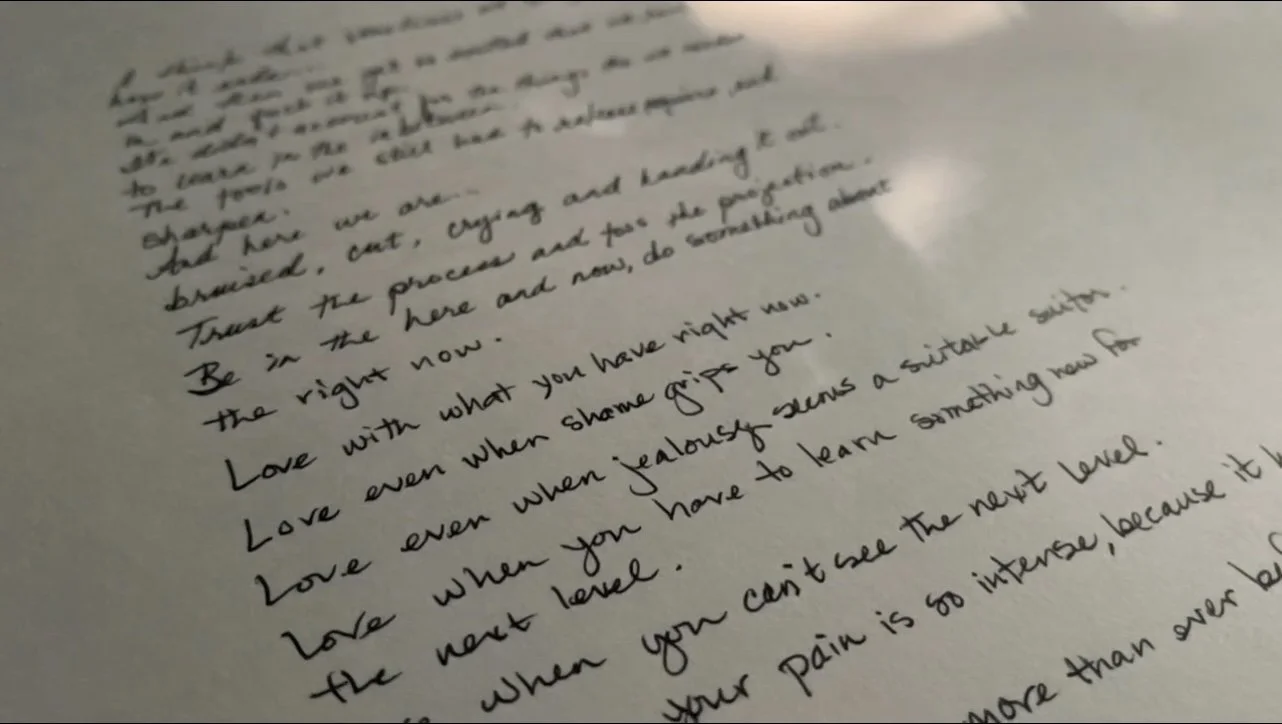 I think that sometimes we
how it ends...
And then we get so excited that we
in and
We didn't account for the things that we
to learn in the in between.
The tools we still have to release, acquire and
sharpen.
And here we are...
bruised, cut, crying and handing it out.
Trust the process and toss the projection.
Be in the here and now, do something about
the right now.
Love with what you have right now.
Love even when shame grips you.
Love even when jealousy seems a suitable suitor.
Love when you have to learn something new for
the next level.
when you can't see the next level.
your pain is so intense, because it
more than ever